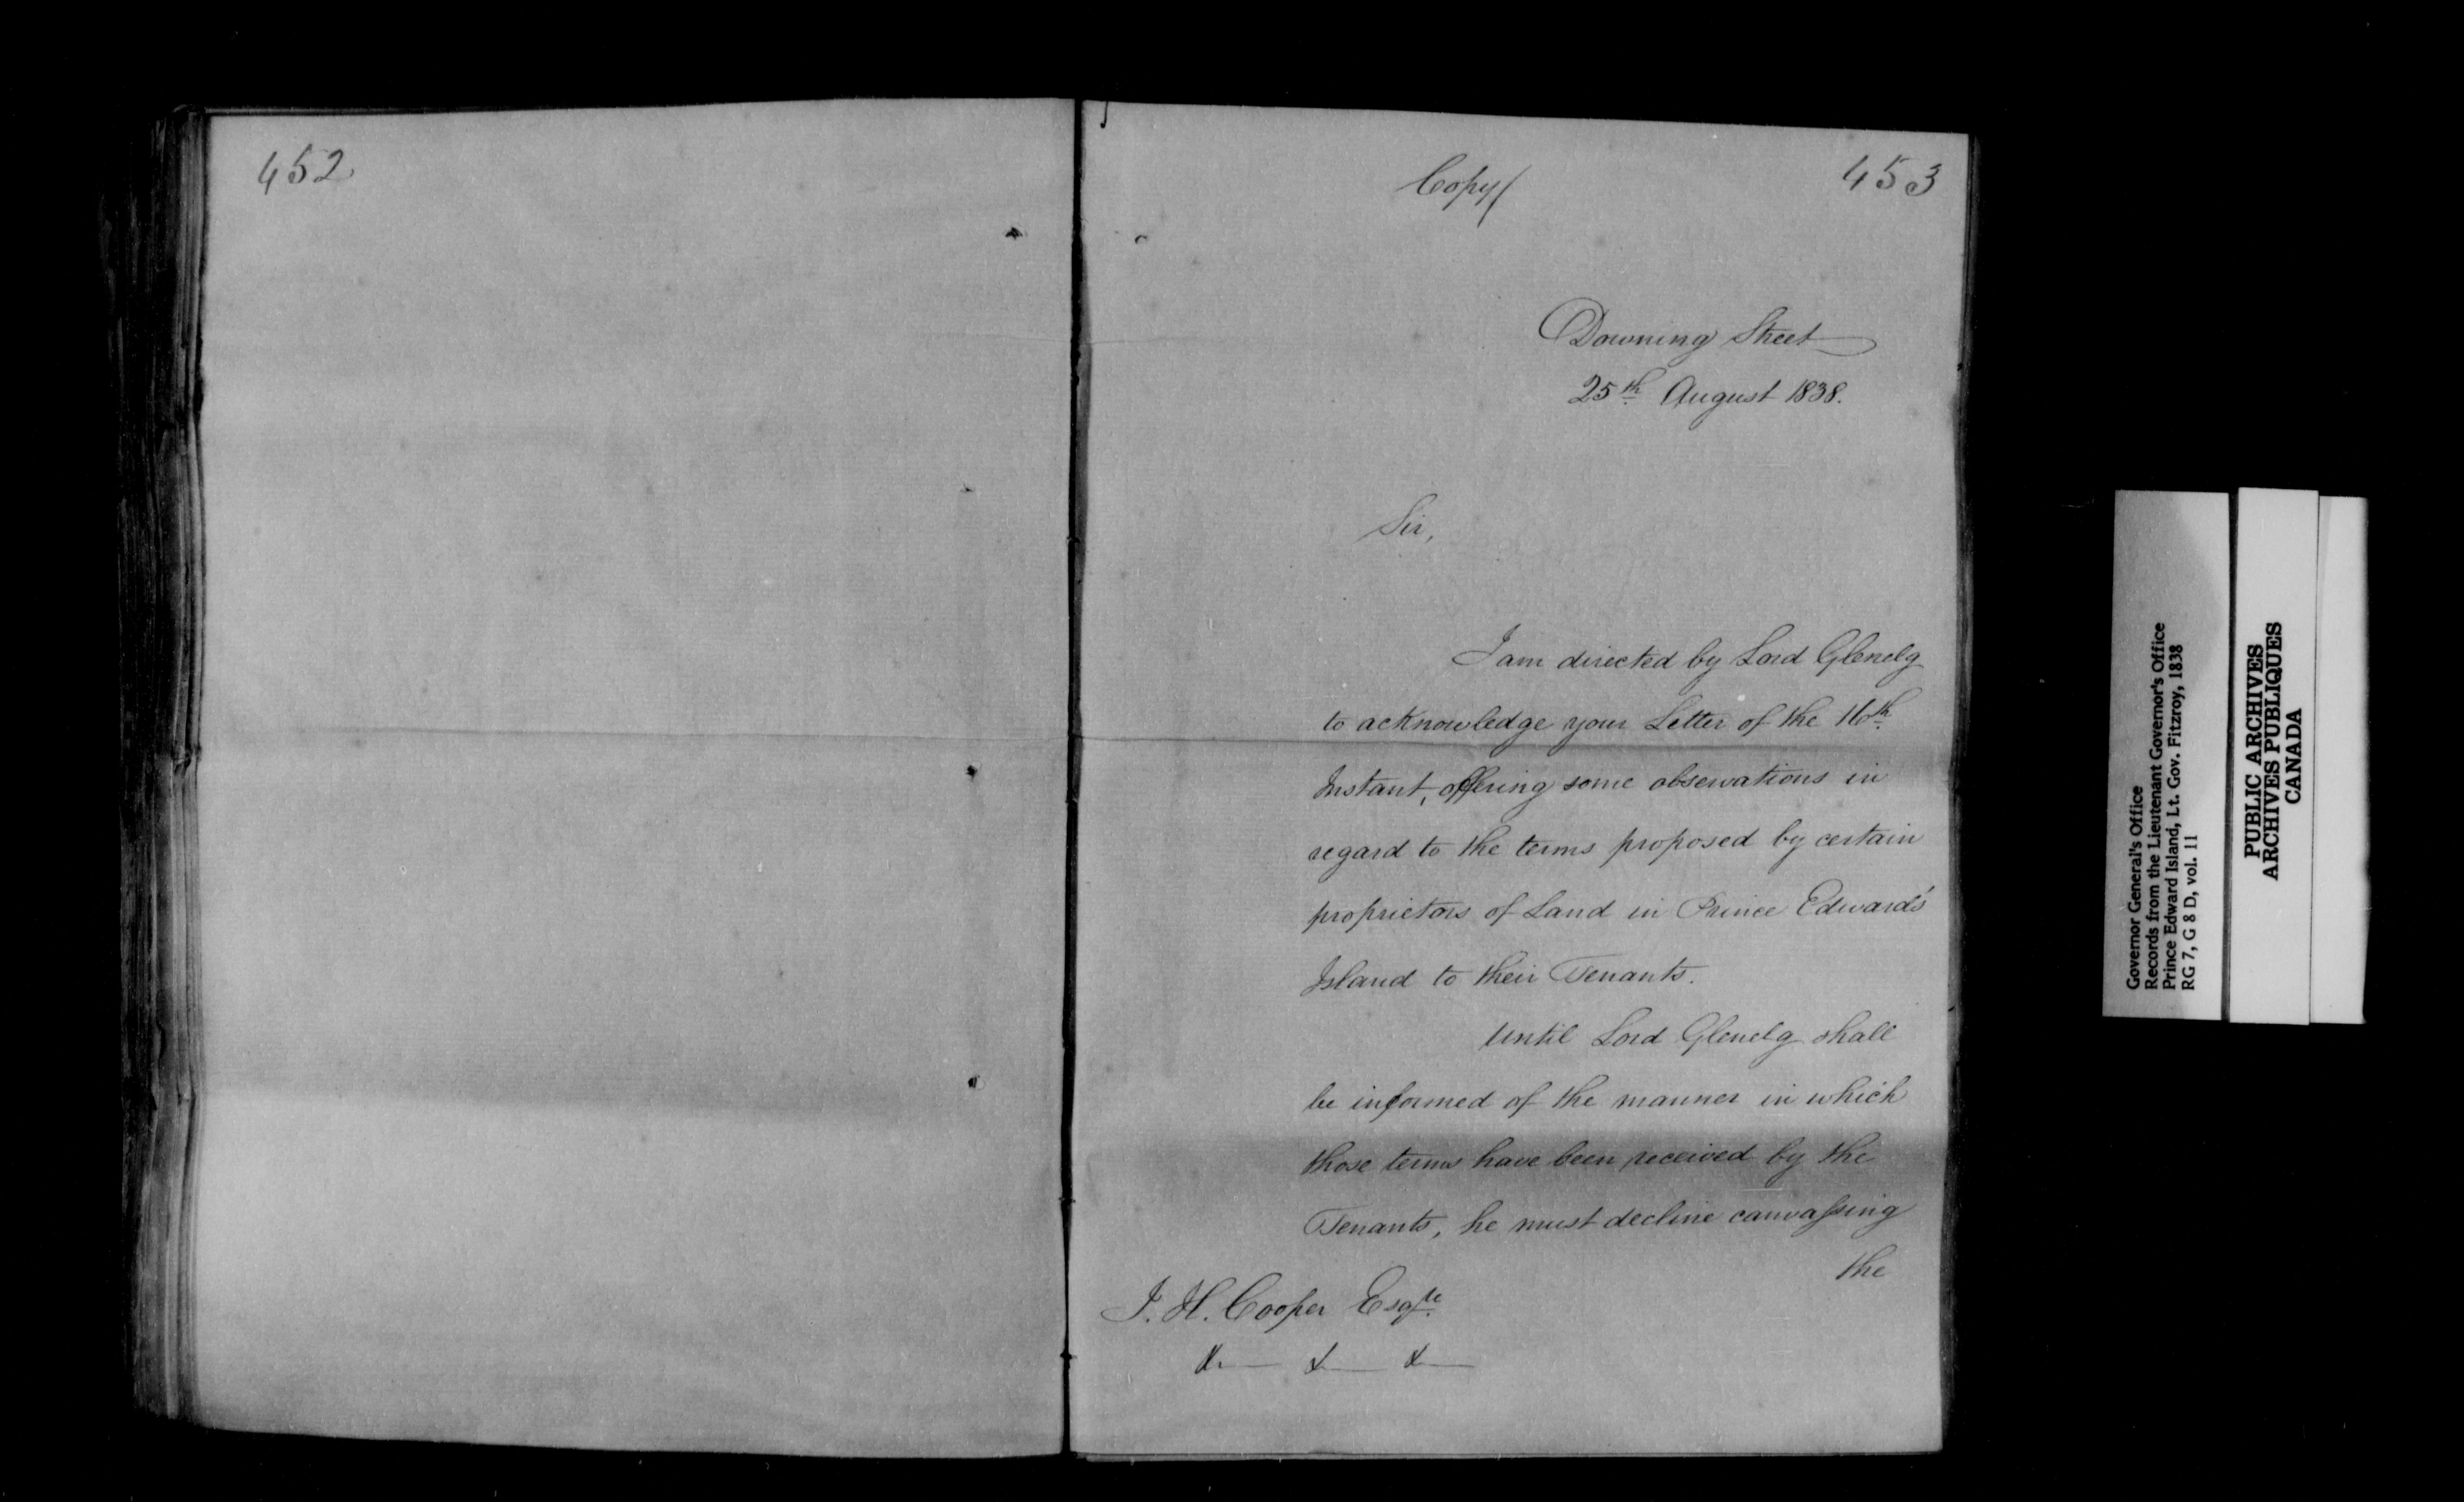 452
Copy/
453
Downing Street
25th August 1838.
Sir,
I am directed by Lord Glenelg
to acknowledge your Letter of the 16th
Instant, offering some observations in
regard to the terms proposed by certain
proprietors of Land in Prince Edward's
Island to their Tenants.
Until Lord Glenelg shall
be informed of the manner in which
those terms have been received by the
Tenants, he must decline canvassing
the
J. H. Cooper Esqre
&c &c &c
Governor General's Office
Records from the Lieutenant Governor's Office
Prince Edward Island, Lt. Gov. Fitzroy, 1838
RG 7, G 8 D, vol. 11
PUBLIC ARCHIVES
ARCHIVES PUBLIQUES
CANADA